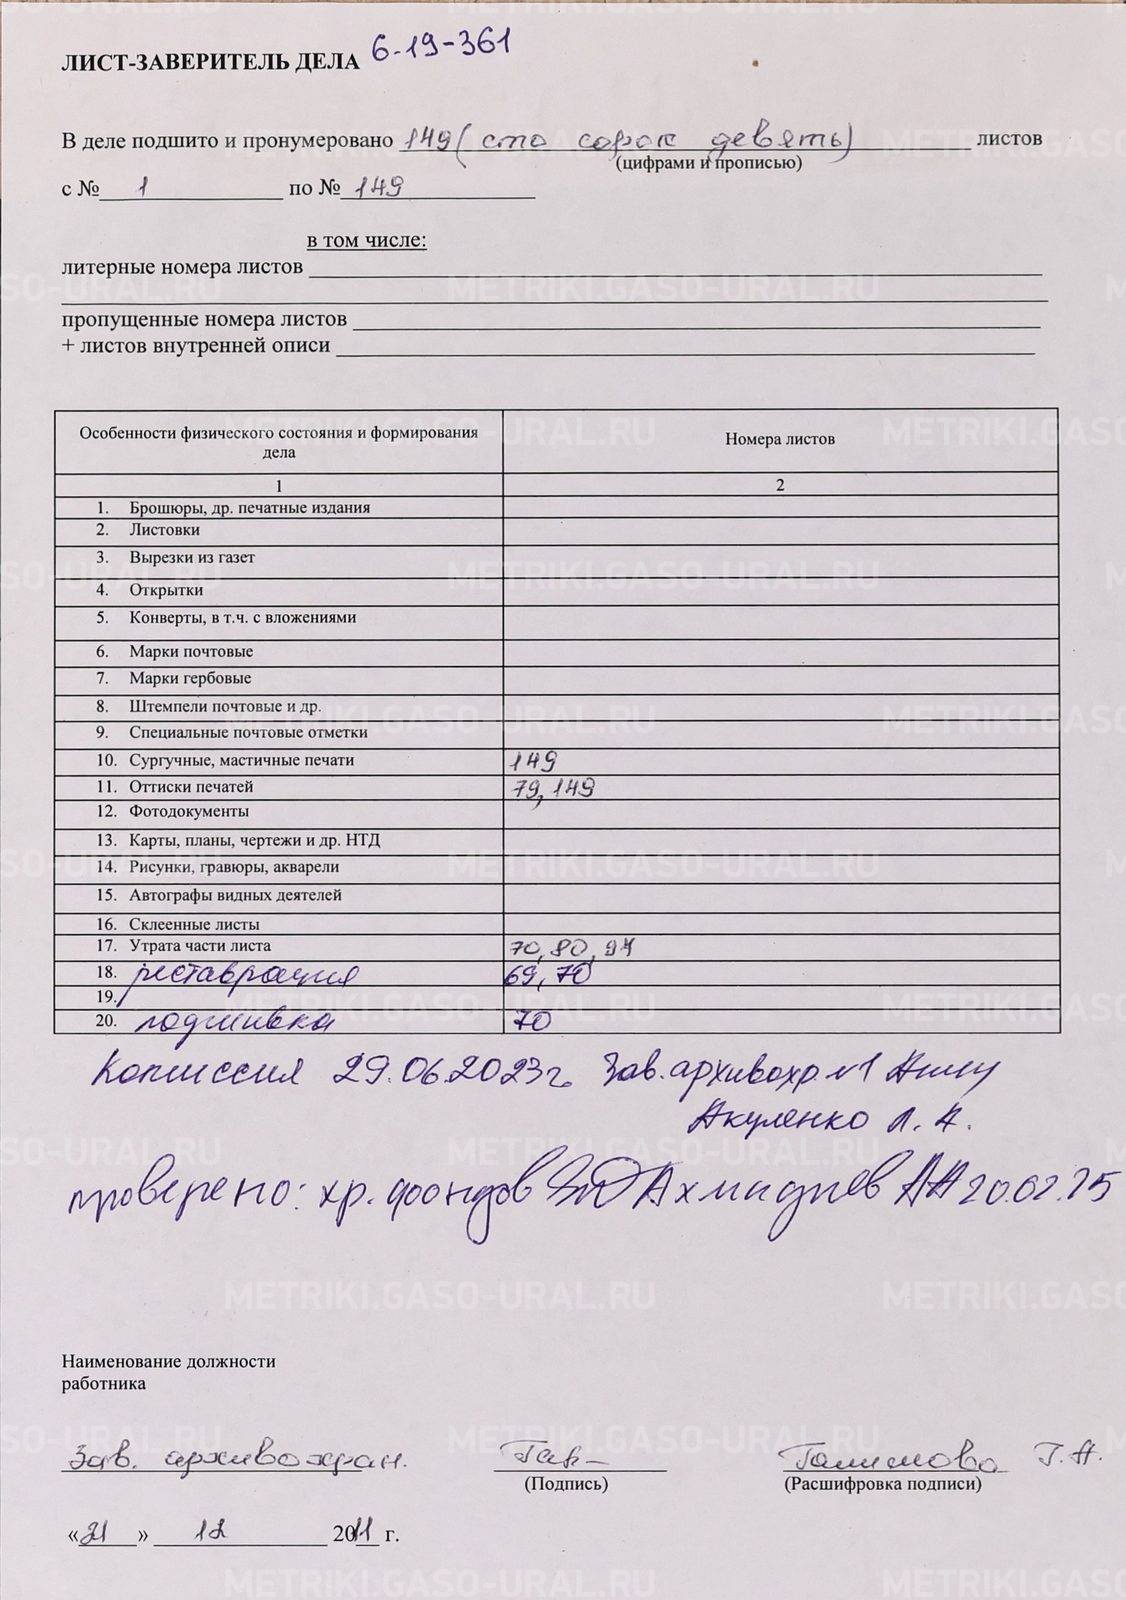 ЛИСТ-ЗАВЕРИТЕЛЬ ДЕЛА 6-19-361
В деле подшито и пронумеровано 149 (сто сорок девять) листов
(цифрами и прописью)
с № 1 по № 149
в том числе:
литерные номера листов
пропущенные номера листов
+ листов внутренней описи
Особенности физического состояния и формирования дела Номера листов
1 2
1. Брошюры, др. печатные издания
2. Листовки
3. Вырезки из газет
4. Открытки
5. Конверты, в т.ч. с вложениями
6. Марки почтовые
7. Марки гербовые
8. Штемпели почтовые и др.
9. Специальные почтовые отметки
10. Сургучные, мастичные печати 149
11. Оттиски печатей 79, 149
12. Фотодокументы
13. Карты, планы, чертежи и др. НТД
14. Рисунки, гравюры, акварели
15. Автографы видных деятелей
16. Склеенные листы
17. Утрата части листа 70, 80, 94
18. реставрация 69, 70
19.
20. подшивка 70
Комиссия 29.06.2023г. Зав. архивохр. №1
Акуленко Л. А.
проверено: хр. фондов АА 20.02.25
Наименование должности
работника
Зав. архивохран. Галимова Г.А.
(Подпись) (Расшифровка подписи)
«21» 12 2011 г.
METRIKI.GASO-URAL.RU